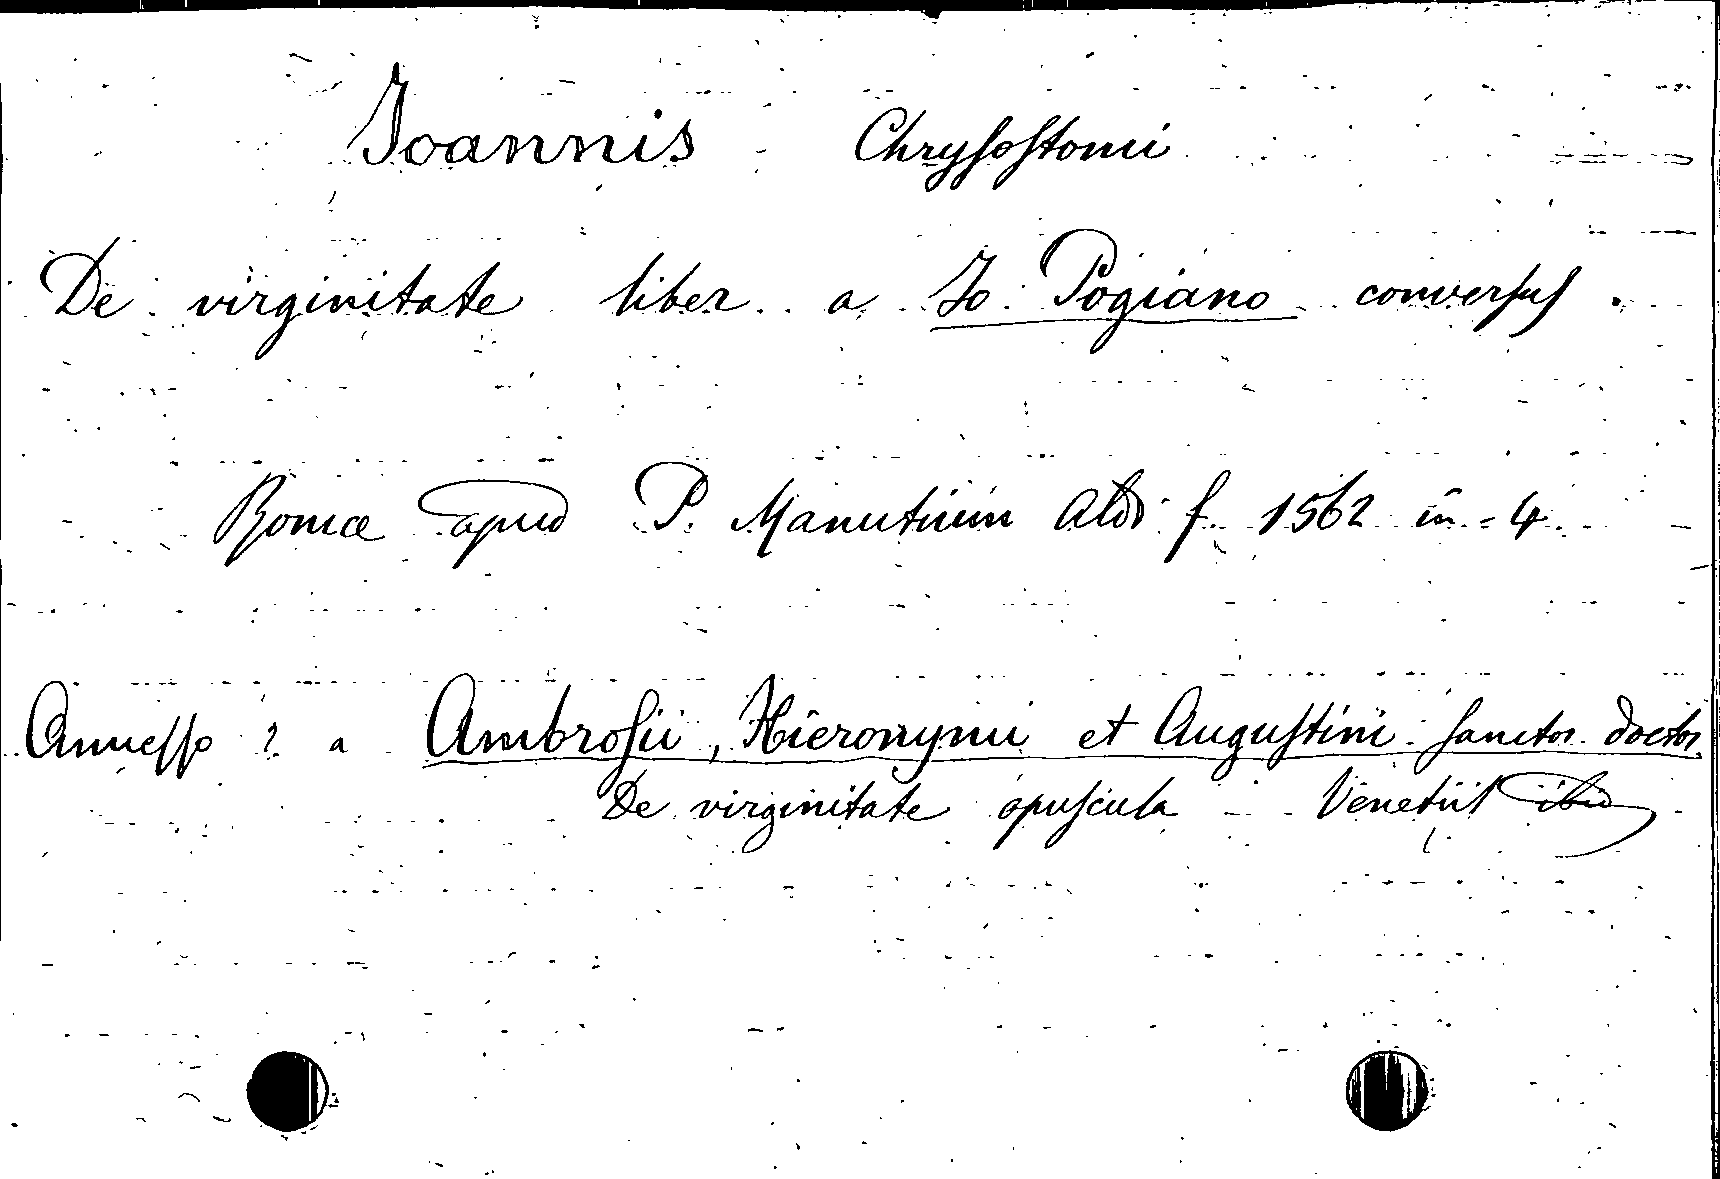 Joannis Chrysostomi
De virginitate liber a Jo. Pogiano conversus.
Romæ apud P. Manutium Aldi f. 1562 in-4
Annesso a Ambrosii, Hieronymi et Augustini sanctor. doctor.
De virginitate opuscula - Venetiis ibid